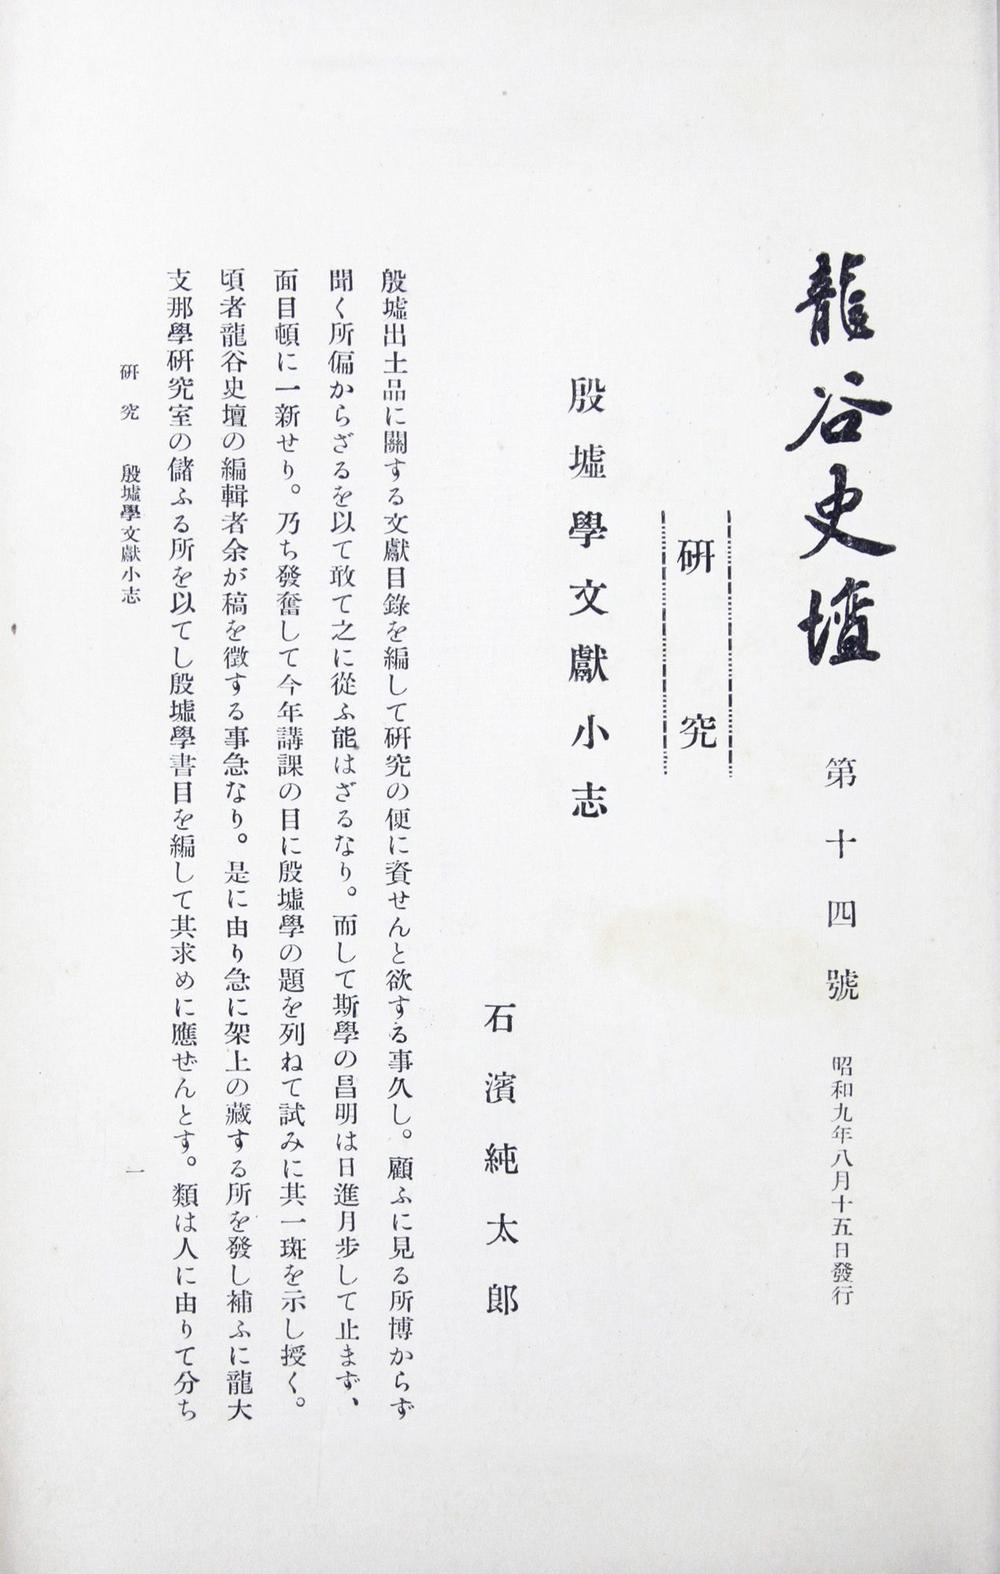 龍谷史壇 第十四號 昭和九年八月十五日發行
研究
殷墟學文獻小志
石濱純太郎
殷墟出土品に關する文獻目錄を編して研究の便に資せんと欲する事久し。顧ふに見る所博からず
聞く所偏からざるを以て敢て之に從ふ能はざるなり。而して斯學の昌明は日進月步して止まず、
面目頓に一新せり。乃ち發奮して今年講課の目に殷墟學の題を列ねて試みに其一斑を示し授く。
頃者龍谷史壇の編輯者余が稿を徵する事急なり。是に由り急に架上の藏する所を發し補ふに龍大
支那學研究室の儲ふる所を以てし殷墟學書目を編して其求めに應ぜんとす。類は人に由りて分ち
研究 殷墟學文獻小志
一